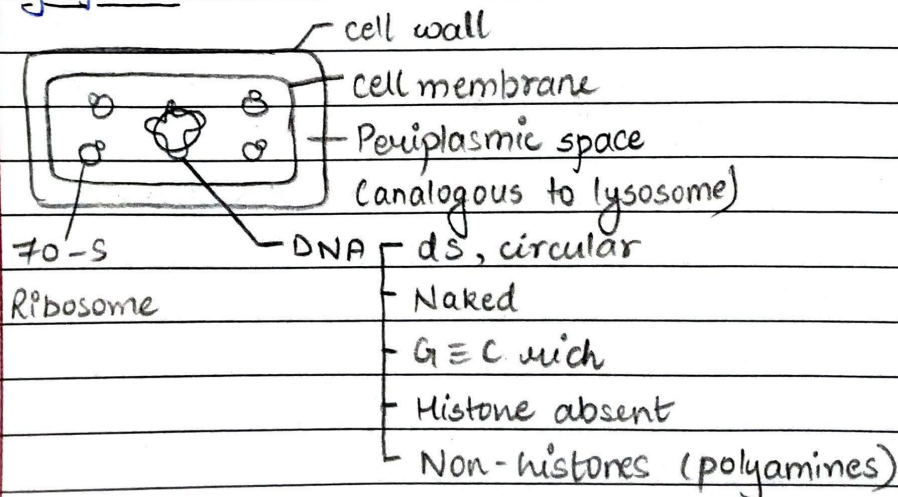 cell wall
cell membrane
Periplasmic space
(analogous to lysosome)
70-S
Ribosome
DNA
ds, circular
Naked
G≡C rich
Histone absent
Non-histones (polyamines)